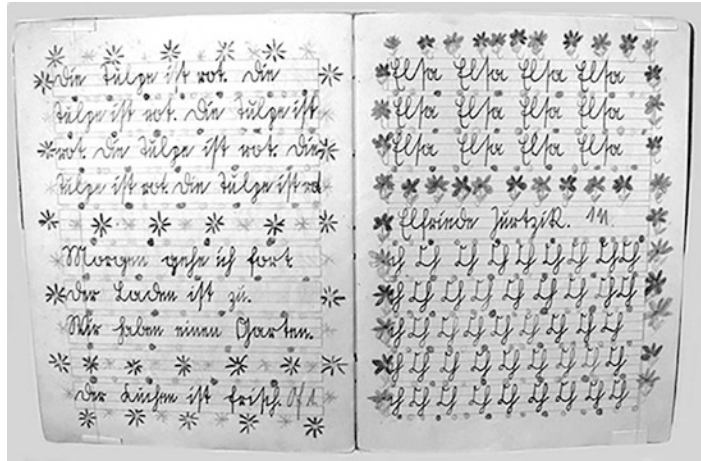 Die Tulpe ist rot. Die
Tulpe ist rot. Die Tulpe ist
rot. Die Tulpe ist rot. Die
Tulpe ist rot. Die Tulpe ist rot
Morgen gehe ich fort
Der Laden ist zu.
Wir haben einen Garten.
Der Kuchen ist frisch.
Elsa Elsa Elsa Elsa
Elsa Elsa Elsa Elsa
Elsa Elsa Elsa Elsa
Elfriede Jurtzik.
ch Ch Ch Ch Ch Ch Ch Ch
ch Ch Ch Ch Ch Ch Ch Ch
ch Ch Ch Ch Ch Ch Ch Ch
ch Ch Ch Ch Ch Ch Ch Ch
ch Ch Ch Ch Ch Ch Ch Ch